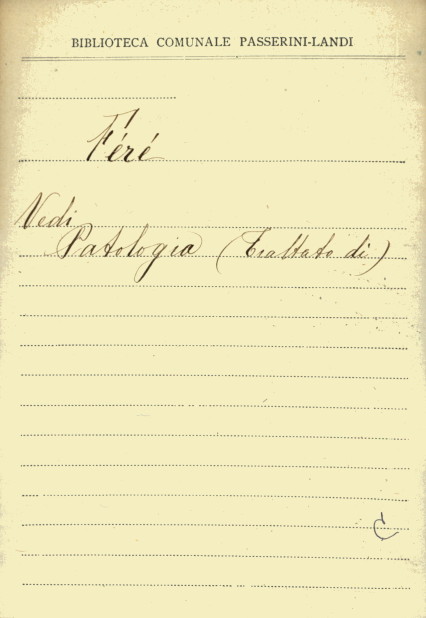 BIBLIOTECA COMUNALE PASSERINI-LANDI
Féré
Vedi
Patologia (Trattato di)
C